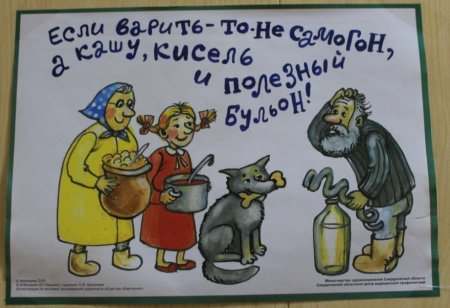 Если варить - то не самогон,
а кашу, кисель
и полезный
бульон!
Министерство здравоохранения Свердловской области
Свердловский областной центр медицинской профилактики